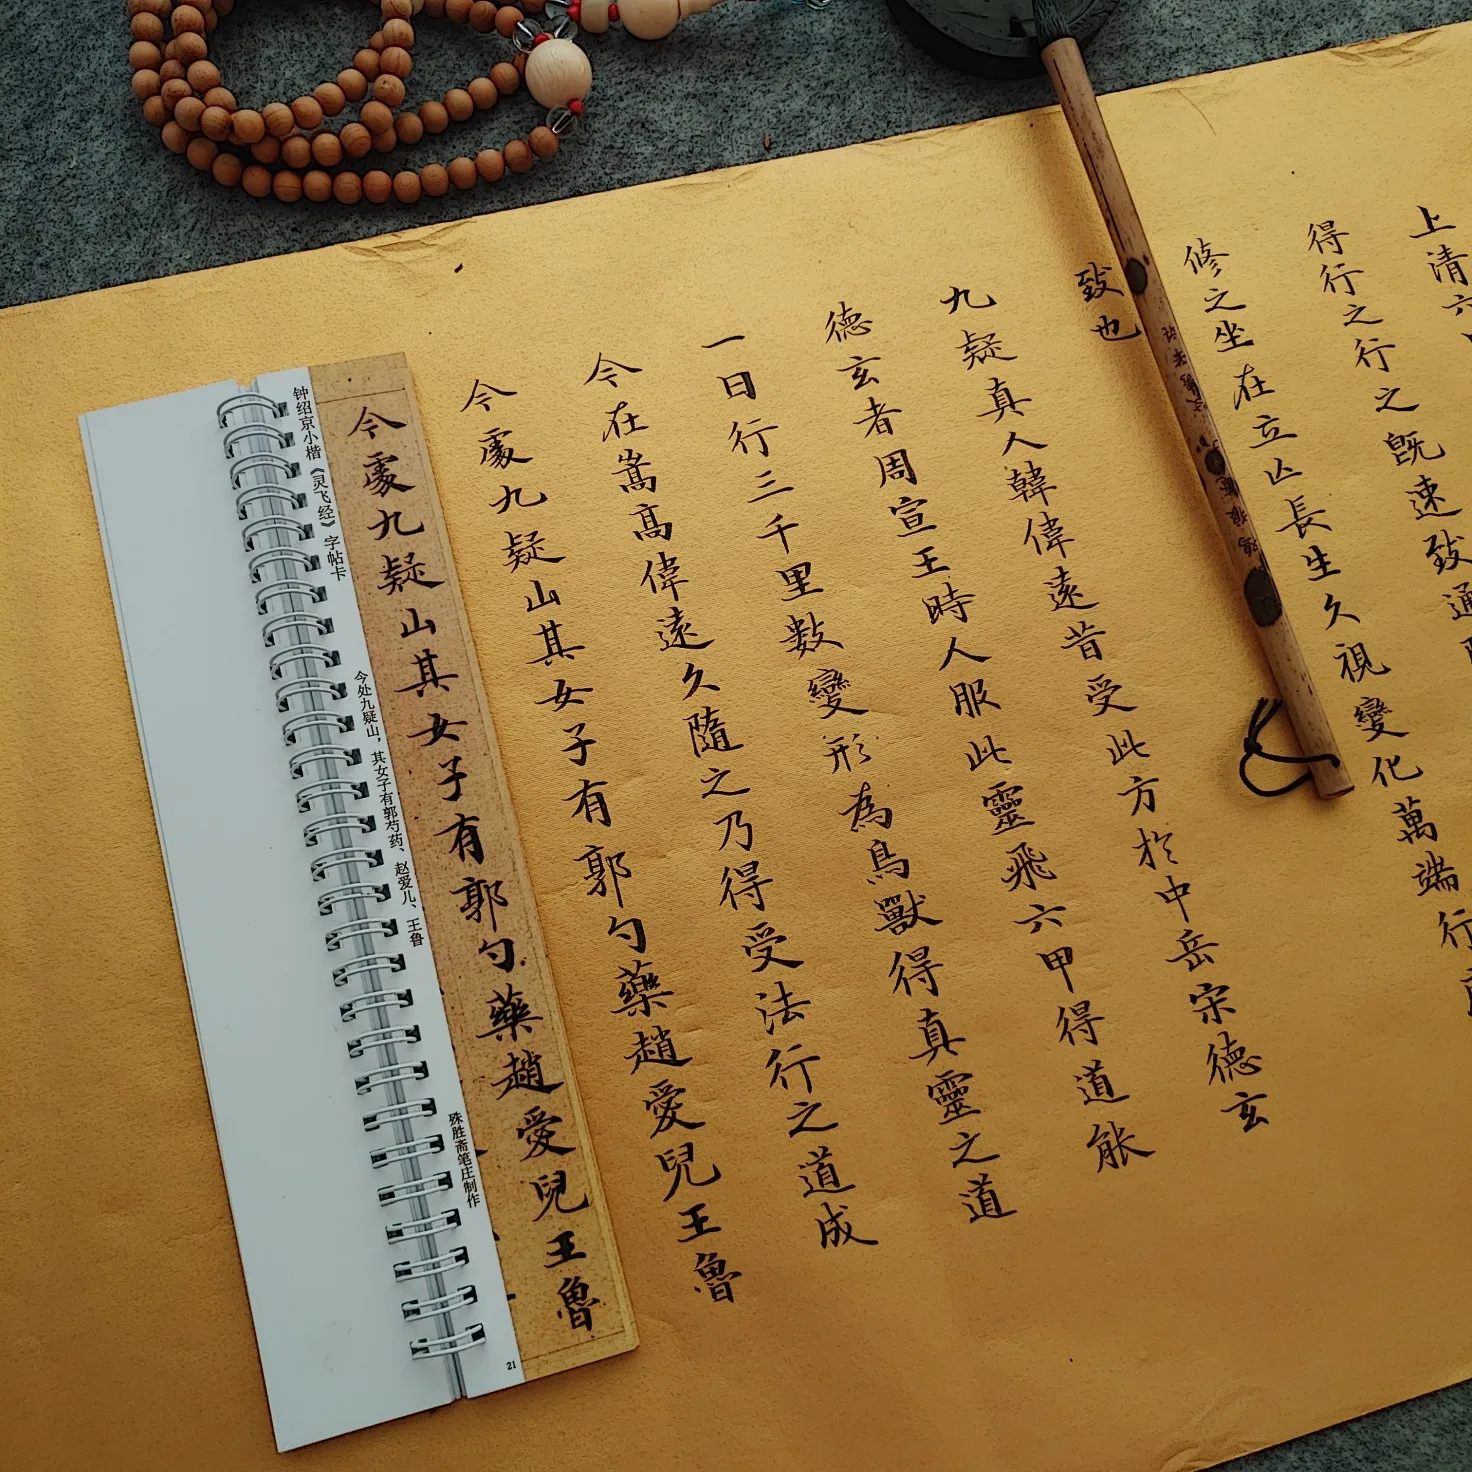 上清六
得行之行之既速致通
修之坐在立亾長生久視變化萬端行
致也
九疑真人韓偉遠昔受此方於中岳宋德玄
德玄者周宣王時人服此靈飛六甲得道能
一日行三千里數變形為鳥獸得真靈之道
今在嵩高偉遠久隨之乃得受法行之道成
今處九疑山其女子有郭勺藥趙愛兒王魯
今處九疑山其女子有郭勺藥趙愛兒王魯
钟绍京小楷《灵飞经》字帖卡
今处九疑山，其女子有郭芍药、赵爱儿、王鲁
殊胜斋笔庄制作
21